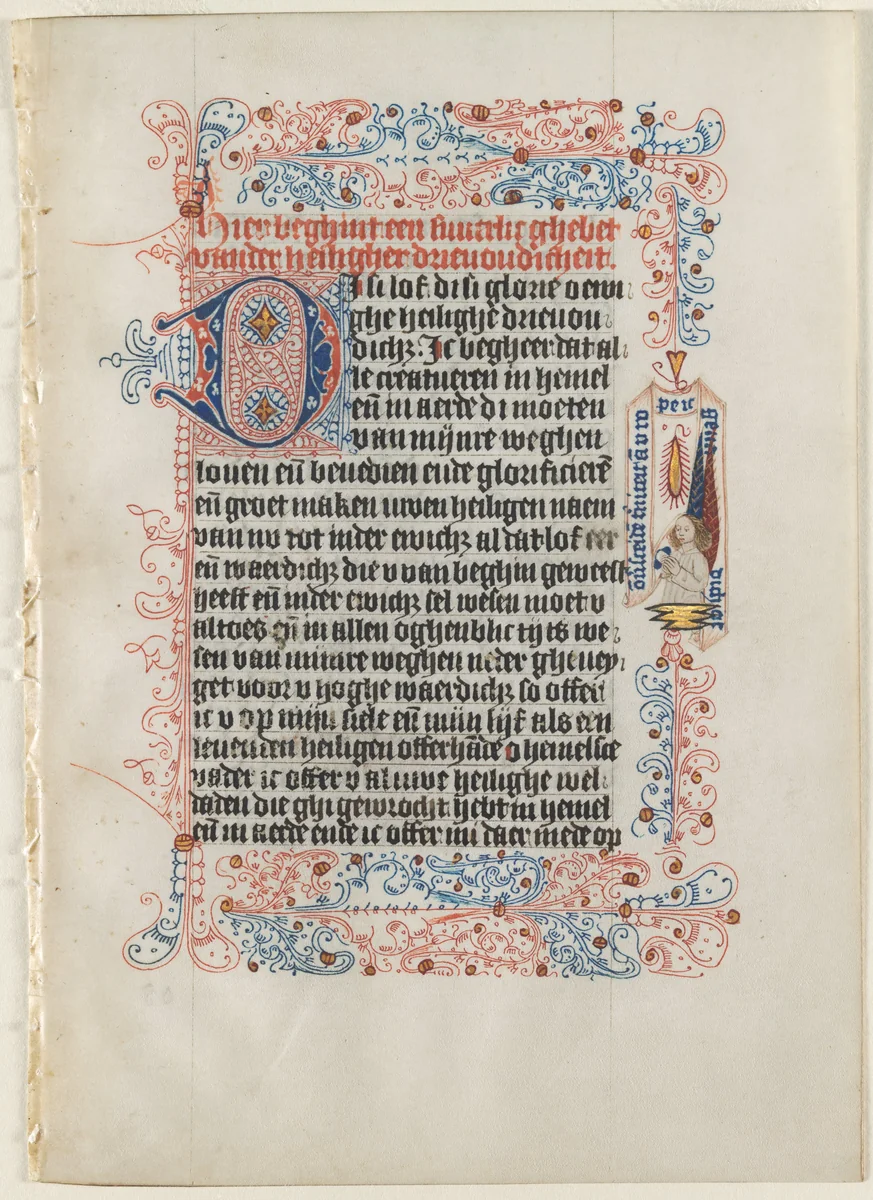 Hier beghint een suuerlic ghebet
vander heiligher drieuoudicheit.
DI si lof. di si glorie o ewi
ghe heilighe drieuou
dichz. Ic begheer dat al
le creatueren in hemel
eñ in aerde di moeten
van mijnre weghen
louen eñ benedien ende glorificierē
eñ groet maken uwen heiligen naem
van nv tot inder ewichz al dat lof eer
eñ waerdichz die v van beghin geweest
heeft eñ inder ewichz sel wesen moet v
altoes eñ in allen oghenblic tijts we
sen van mijnre weghen
get voor v hoghe waerdichz so offer
ic v op mijn siele eñ mijn lijf als een
leuenden heiligen offerhāde o hemelsce
vader ic offer v al uwe heilighe wel
daden die ghi gewrocht hebt in hemel
eñ in aerde ende ic offer mi daer mede op